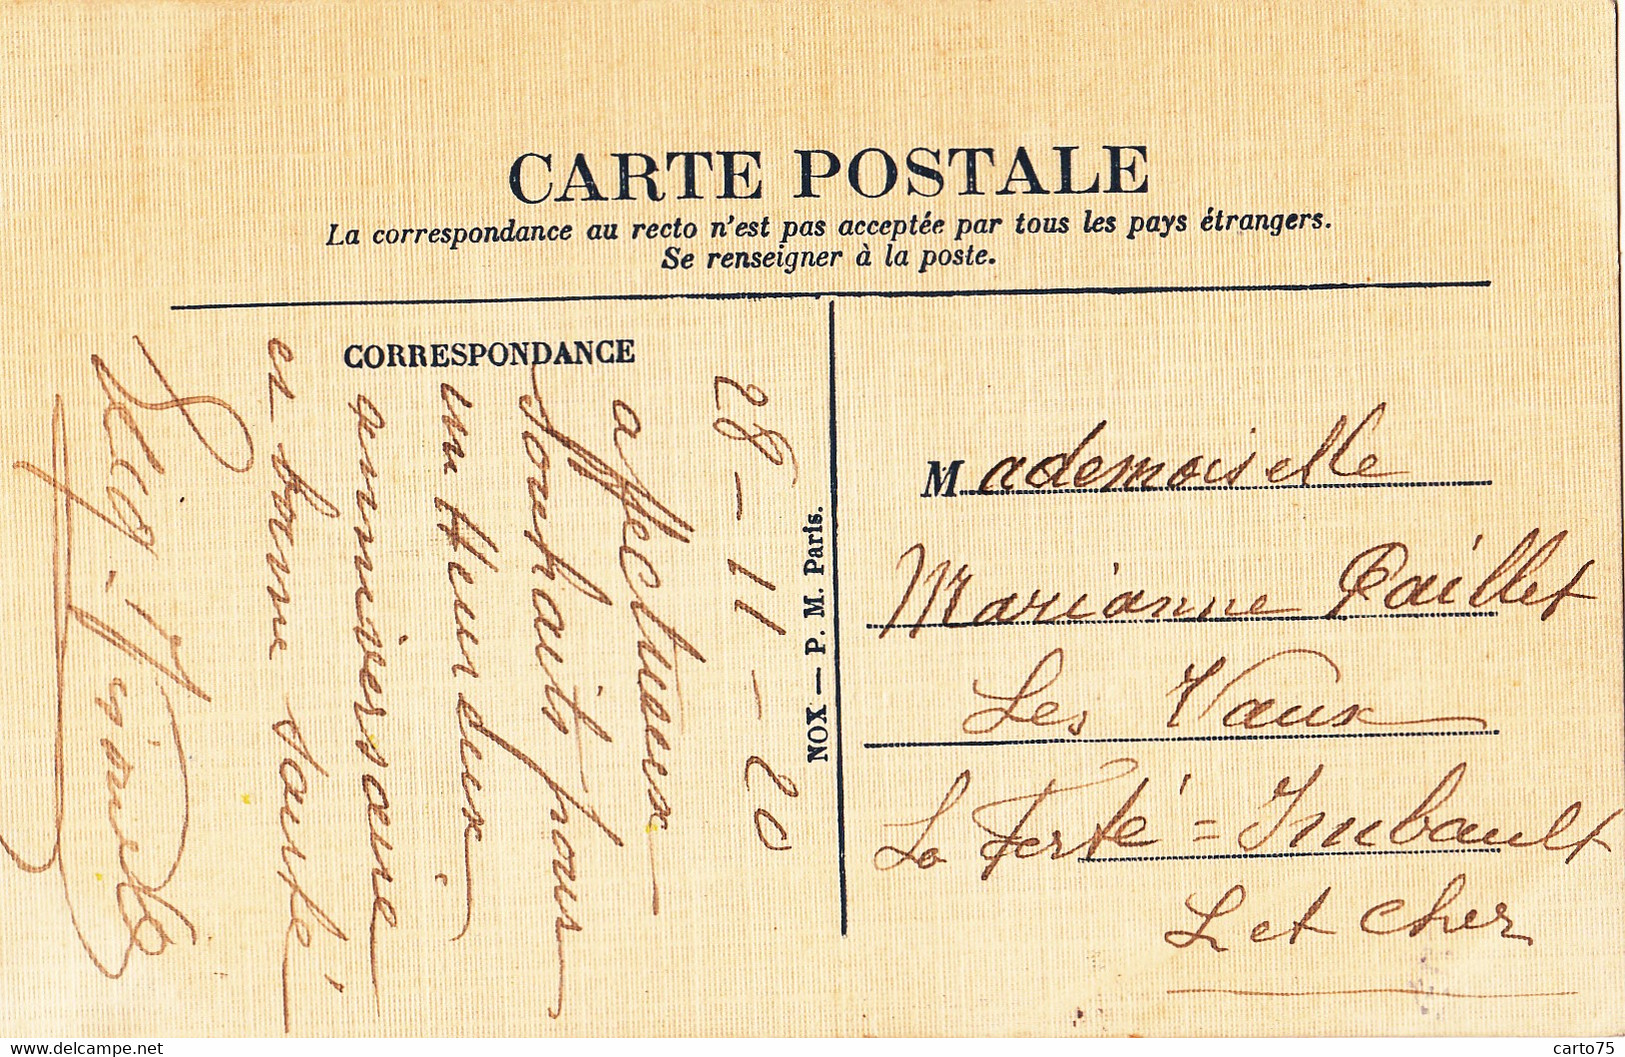 CARTE POSTALE
La correspondance au recto n'est pas acceptée par tous les pays étrangers.
Se renseigner à la poste.
CORRESPONDANCE
28-11-20
affectueux
Souhaits pour
un Heureux
anniversaire
et bonne santé
NOX — P. M. Paris.
Mademoiselle
Marianne Paillet
Les Vaux
La Ferté = Imbault
L et Cher
delcampe.net
carto75